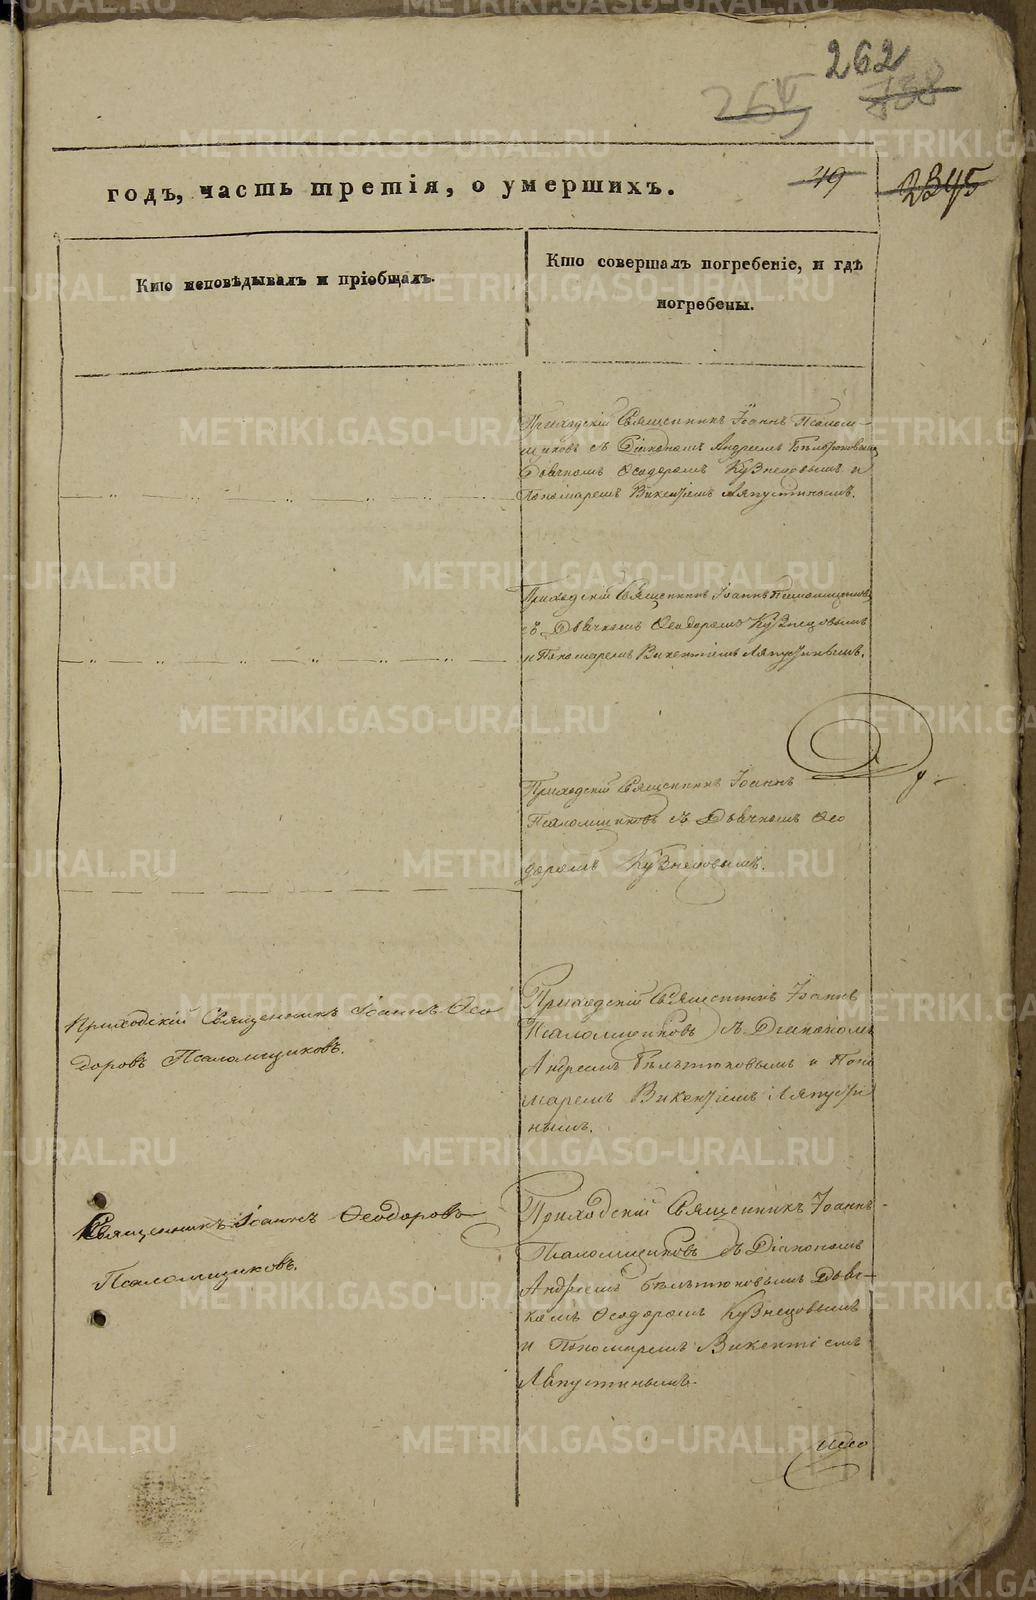 262
738
годъ, часть третія, о умершихъ.
49
2345
Кто исповѣдывалъ и пріобщалъ.
Кто совершалъ погребеніе, и гдѣ
погребены.
Приходскій Священникъ Іоаннъ Псалом-
щиковъ съ Діакономъ Андреемъ Бѣлѣтюковымъ
Дьячкомъ Ѳеодоромъ Кузнецовымъ и
Пономаремъ Викентіемъ Ляпустинымъ.
Приходскій Священникъ Іоаннъ Псаломщиковъ
съ Дьячкомъ Ѳеодоромъ Кузнецовымъ
и Пономаремъ Викентіемъ Ляпустинымъ.
Приходскій Священникъ Іоаннъ
Псаломщиковъ съ Дьячкомъ Ѳео
доромъ Кузнецовымъ.
Приходскій Священникъ Іоаннъ Ѳео
доровъ Псаломщиковъ.
Приходскій Священникъ Іоаннъ
Псаломщиковъ съ Діакономъ
Андреемъ Бѣлѣтюковымъ и Поно
маремъ Викентіемъ Ляпусти
нымъ.
Священникъ Іоаннъ Ѳеодоровъ
Псаломщиковъ.
Приходскій Священникъ Іоаннъ
Псаломщиковъ съ Діакономъ
Андреемъ Бѣлѣтюковымъ Дьяч-
комъ Ѳеодоромъ Кузнецовымъ
и Пономаремъ Викентіемъ
Ляпустинымъ.
METRIKI.GASO-URAL.RU